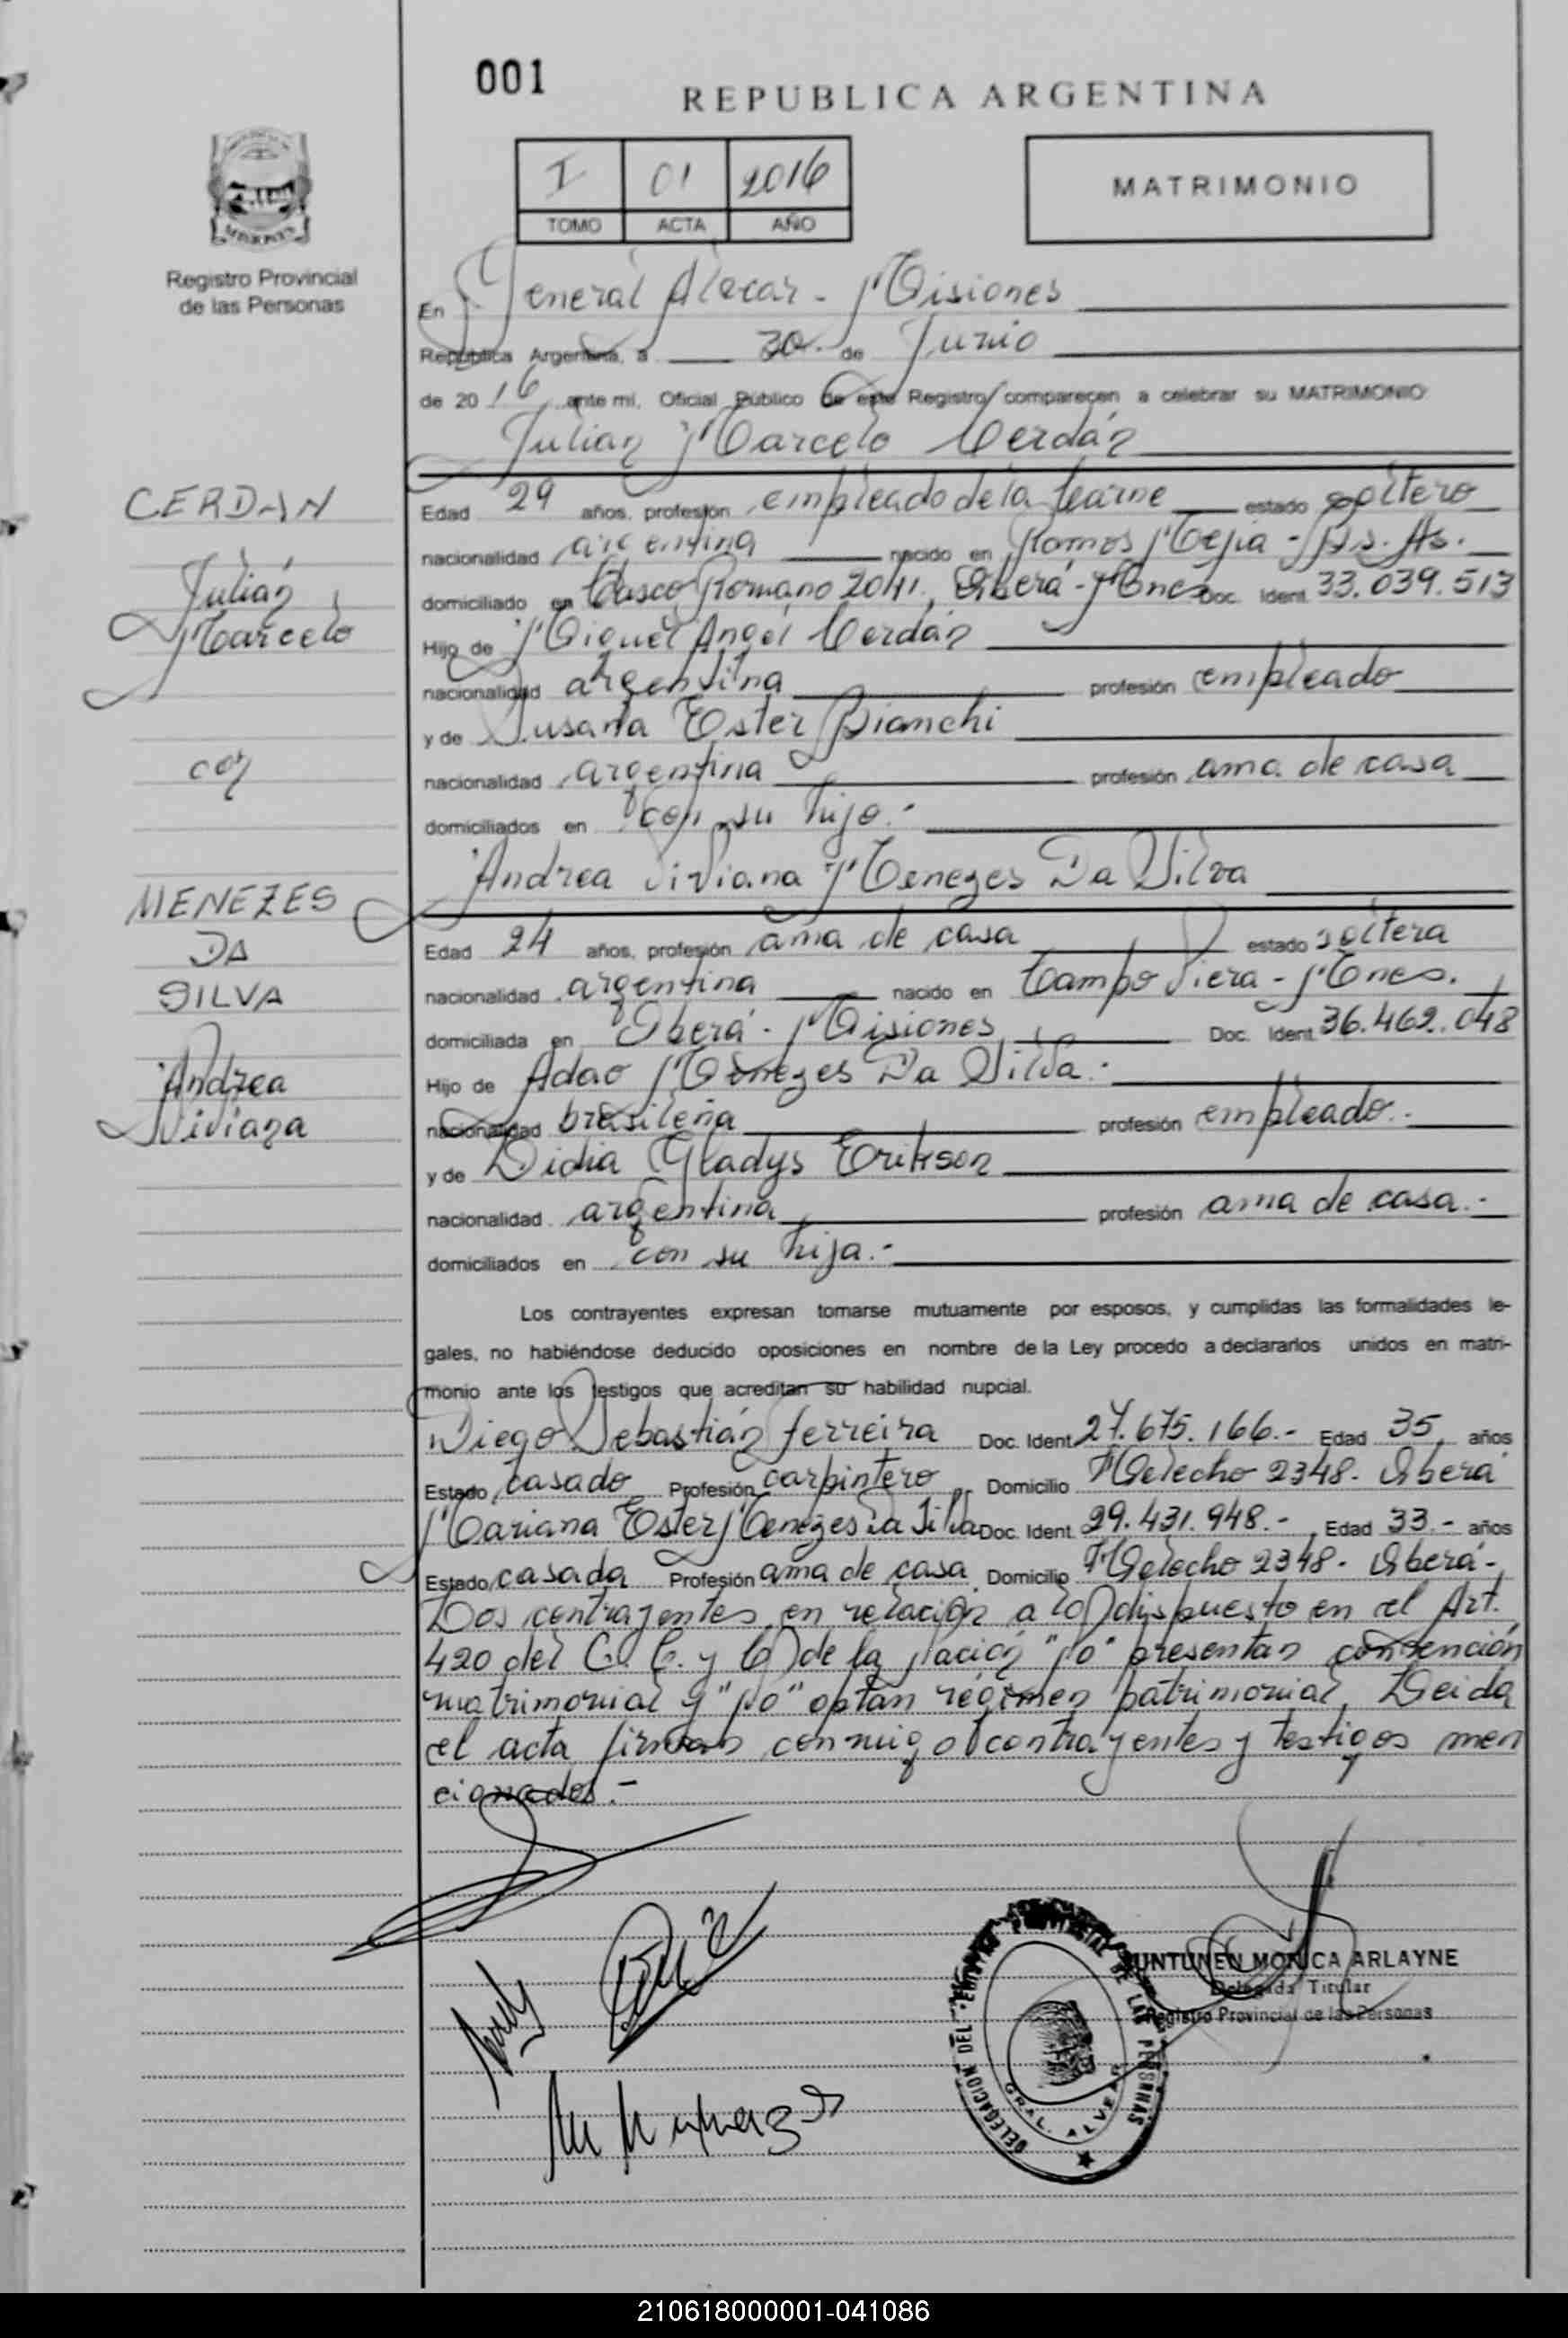 001
REPUBLICA ARGENTINA
I 01 2016
TOMO ACTA AÑO
MATRIMONIO
Registro Provincial
de las Personas
En General Alvear - Misiones
República Argentina, a 30 de Junio
de 2016 ante mi, Oficial Público de este Registro comparecen a celebrar su MATRIMONIO
Julián Marcelo Cerdán
CERDAN
Julián
Marcelo
con
MENEZES
DA
SILVA
Andrea
Viviana
Edad 29 años, profesión empleado de la Carne estado soltero
nacionalidad argentina nacido en Ramos Mejia - Bs. As.
domiciliado en Vasco Romano 2041. Oberá - Mnes Doc. Ident. 33.039.513
Hijo de Miguel Angel Cerdán
nacionalidad argentina profesión empleado
y de Susana Ester Bianchi
nacionalidad argentina profesión ama de casa
domiciliados en con su hijo.-
Andrea Viviana Menezes Da Silva
Edad 24 años, profesión ama de casa estado soltera
nacionalidad argentina nacido en Campo Viera - Mnes.
domiciliada en Oberá - Misiones Doc. Ident. 36.462.048
Hijo de Adao Menezes Da Silva.-
nacionalidad brasileña profesión empleado.-
y de Didia Gladys Erikson
nacionalidad argentina profesión ama de casa.-
domiciliados en con su hija.-
Los contrayentes expresan tomarse mutuamente por esposos, y cumplidas las formalidades le-
gales, no habiéndose deducido oposiciones en nombre de la Ley procedo a declararlos unidos en matri-
monio ante los testigos que acreditan su habilidad nupcial.
Diego Sebastián Ferreira Doc. Ident. 27.675.166.- Edad 35 años
Estado casado Profesión carpintero Domicilio Helecho 2348. Oberá
Mariana Ester Menezes Da Silva Doc. Ident. 29.431.948.- Edad 33.- años
Estado casada Profesión ama de casa Domicilio Helecho 2348. Oberá-
Los contrayentes en relación a lo dispuesto en el Art.
420 del C. C. y C. de la Nación "No" presentan convención
matrimonial y "No" optan régimen patrimonial. Leida
el acta firman conmigo contrayentes y testigos men
cionados.-
JUNTUNEN MONICA ARLAYNE
Delegada Titular
Registro Provincial de las Personas
DELEGACION DEL REGISTRO PROVINCIAL DE LAS PERSONAS
GRAL. ALVEAR
210618000001-041086